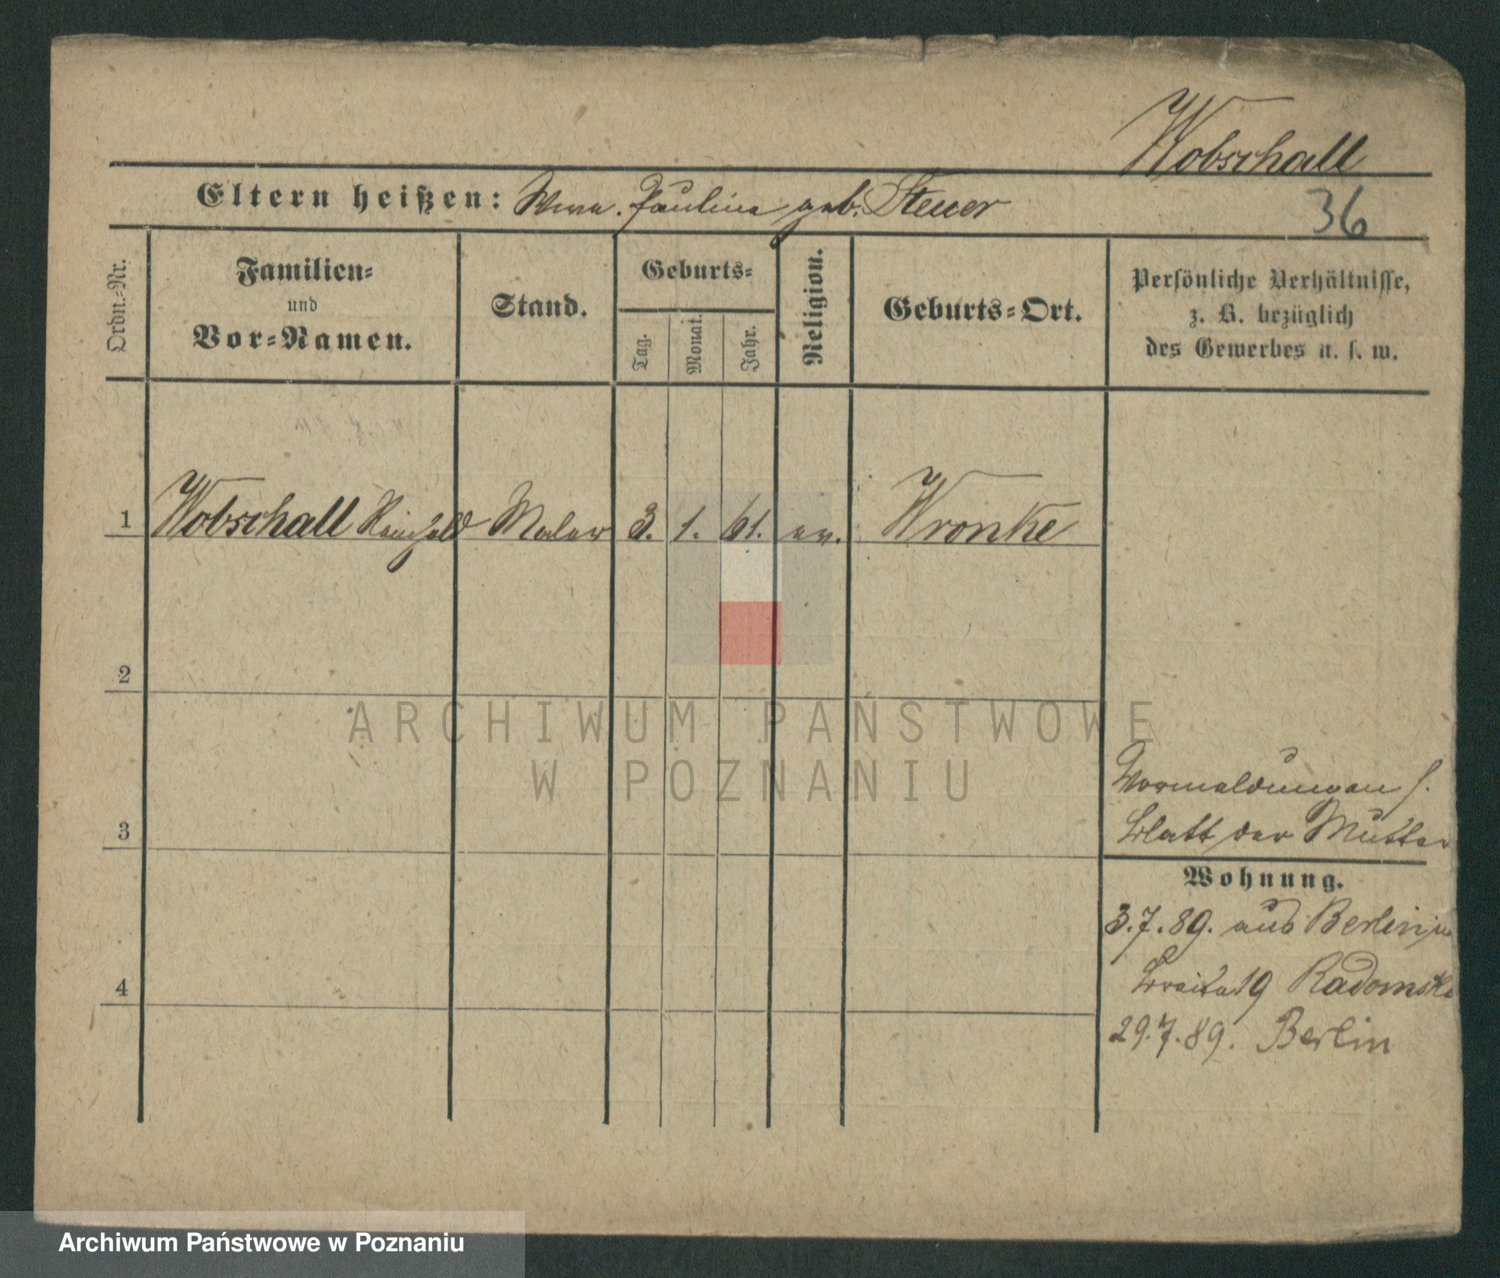 Wobschall
Eltern heißen: Wwe. Pauline geb. Steuer
36
Ordn.-Nr.
Familien-
und
Vor-Namen.
Stand.
Geburts-
Tag.
Monat.
Jahr.
Religion.
Geburts-Ort.
Persönliche Verhältnisse,
z. B. bezüglich
des Gewerbes u. s. w.
1 Wobschall Reinhold Maler 3. 1. 61. ev. Wronke
2
ARCHIWUM PAŃSTWOWE
W POZNANIU
Vormeldungen s.
Blatt der Mutter
3
Wohnung.
3.7.89. aus Berlin
4
Breite 19 Radomski
29.7.89. Berlin
Archiwum Państwowe w Poznaniu